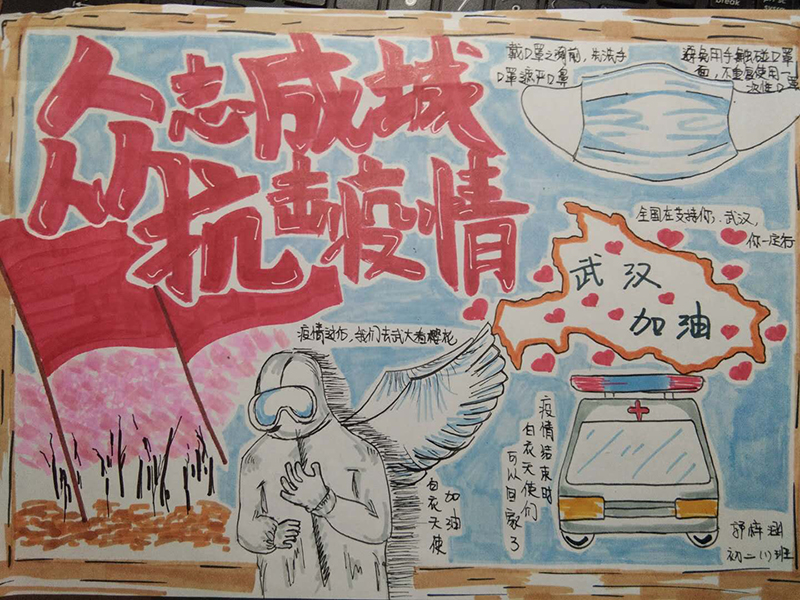 众志成城
抗击疫情
戴口罩之前，先洗手
口罩遮口鼻
避免用手触碰口罩
面，不重复使用一
次性口罩
全国在支持你，武汉，
你一定行
武汉
加油
疫情过后，我们去武大看樱花
加油
白衣天使
疫情结束时
白衣天使们
可以回家了
初二(1)班